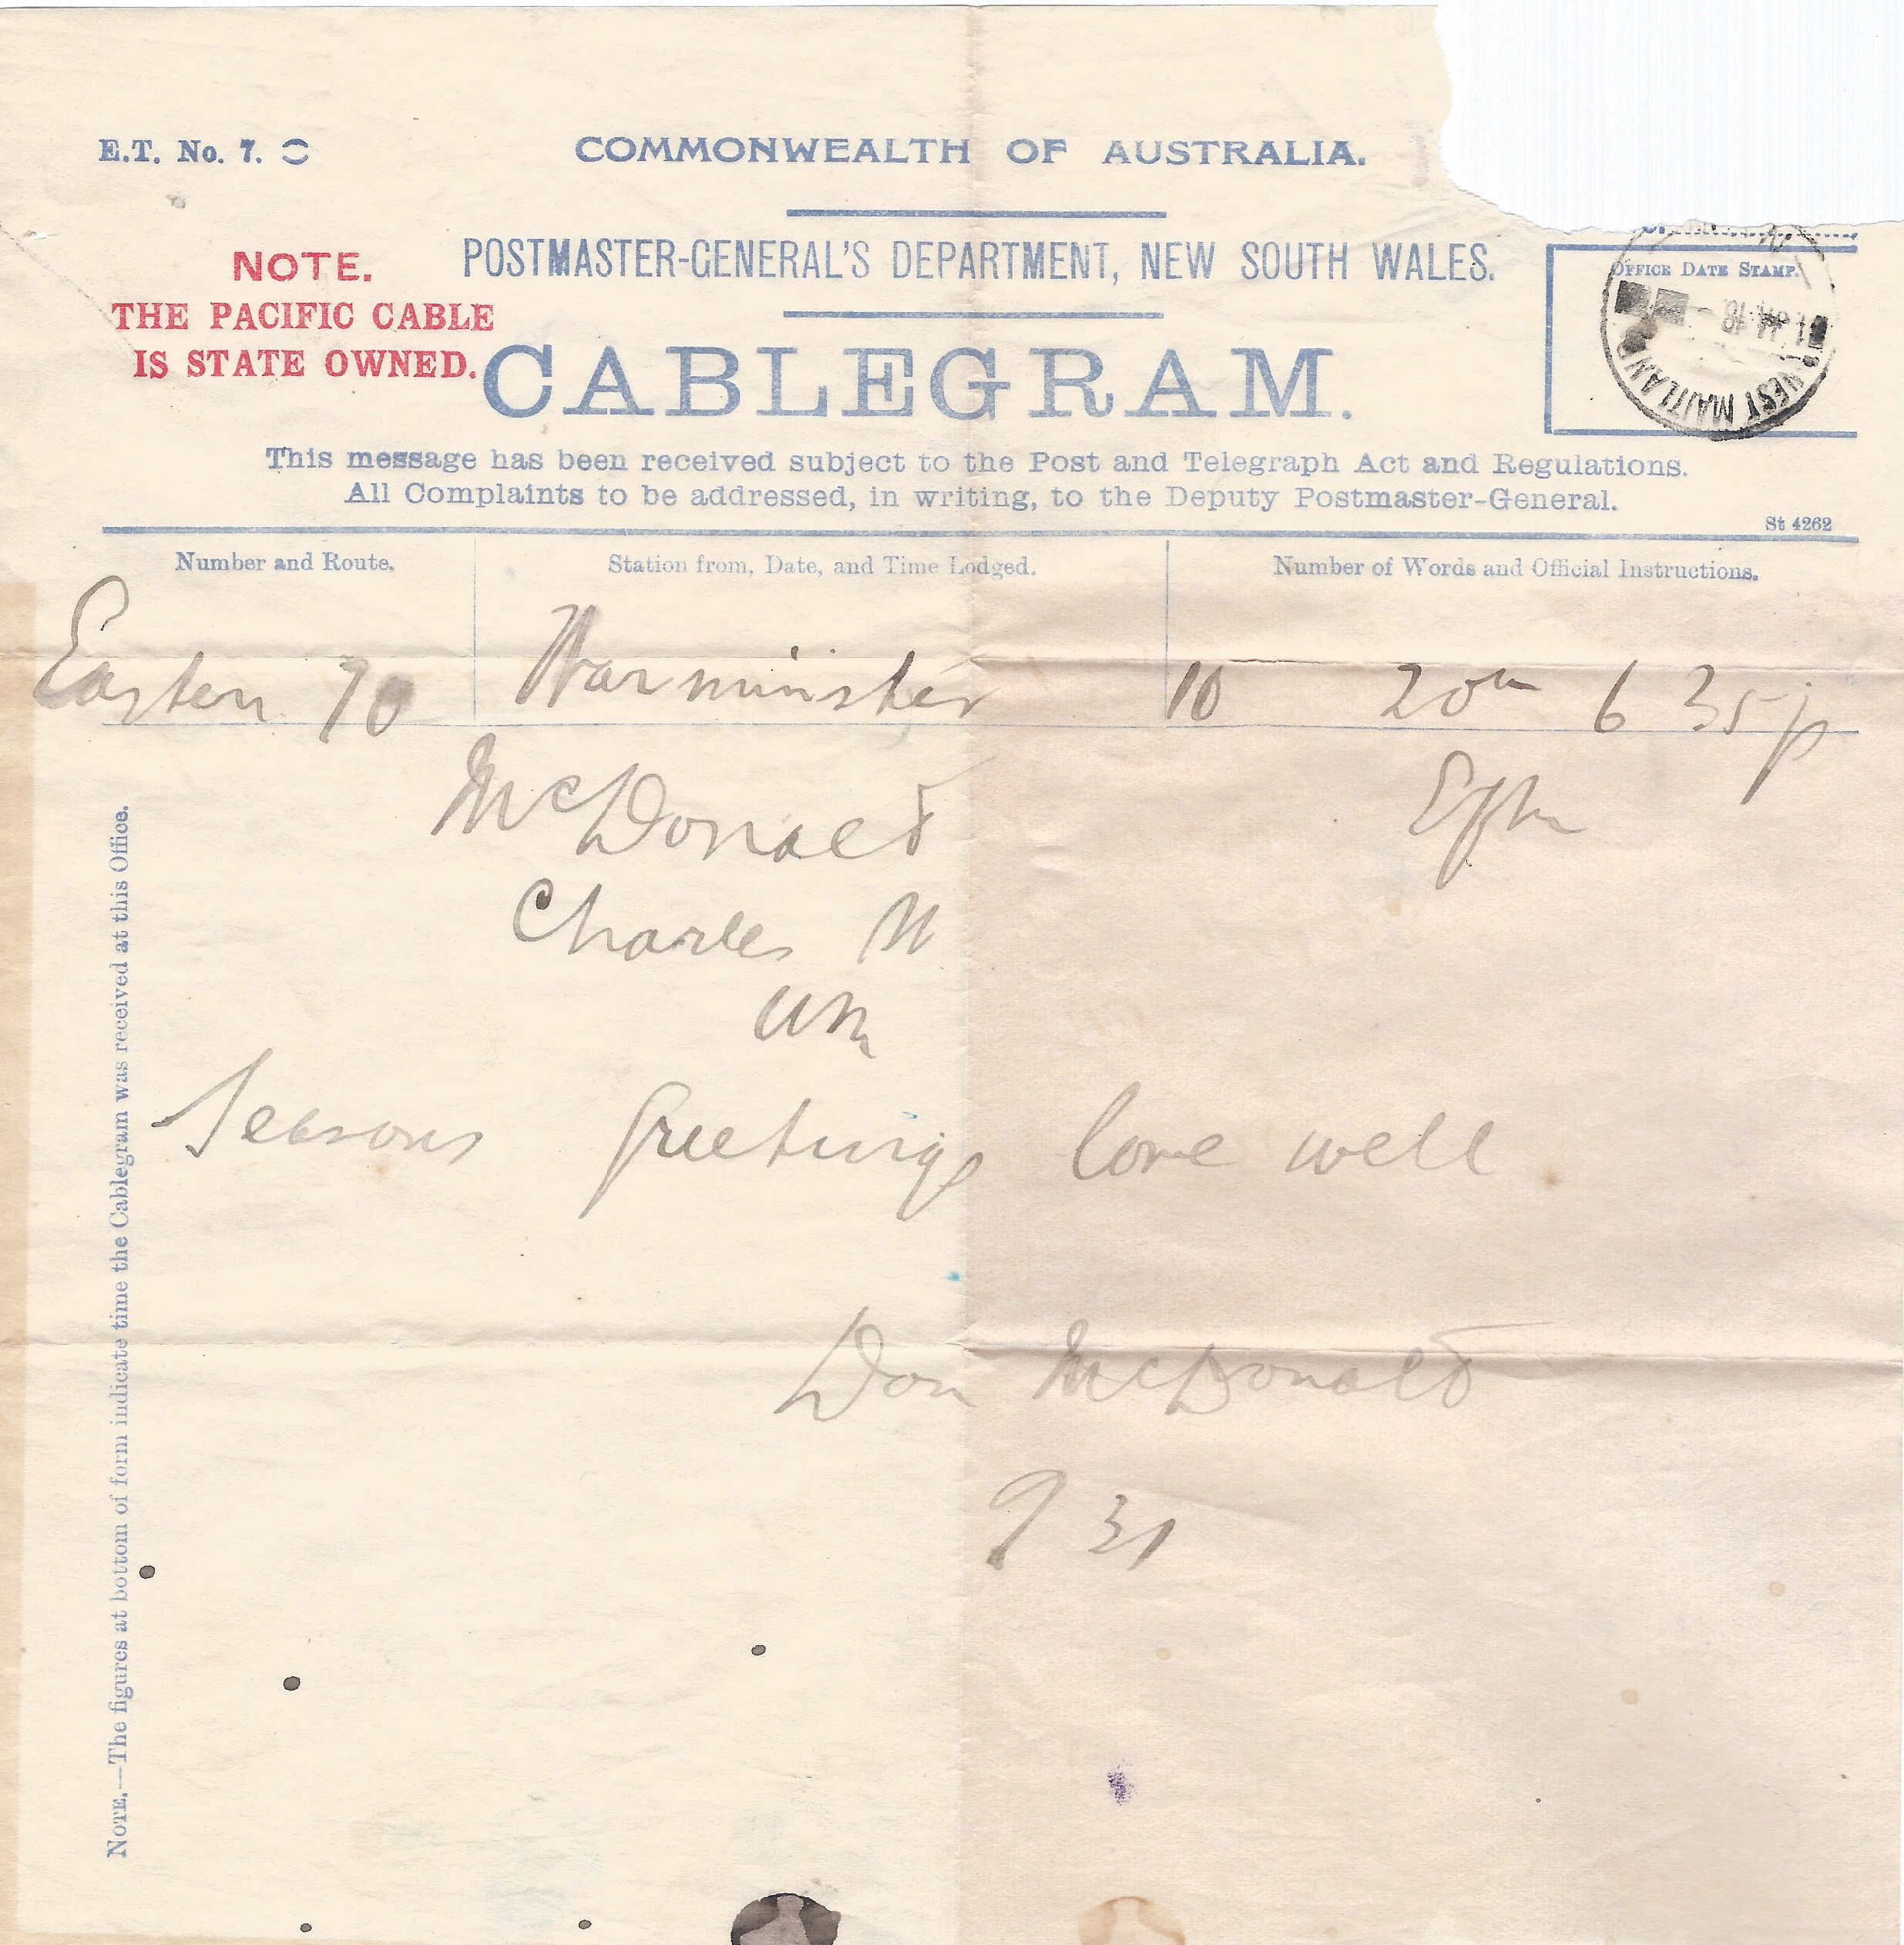 E.T. No. 7.
COMMONWEALTH OF AUSTRALIA.
POSTMASTER-GENERAL'S DEPARTMENT, NEW SOUTH WALES.
NOTE.
THE PACIFIC CABLE
IS STATE OWNED.
CABLEGRAM.
OFFICE DATE STAMP.
WEST MAITLAND
This message has been received subject to the Post and Telegraph Act and Regulations.
All Complaints to be addressed, in writing, to the Deputy Postmaster-General.
St 4262
Number and Route.
Station from, Date, and Time Lodged.
Number of Words and Official Instructions.
Eastern 70 Warminister 10 20th 6 35 p
McDonald Efm
Charles
Wm
Seasons greetings love well
Don McDonald
9 31
NOTE.—The figures at bottom of form indicate time the Cablegram was received at this Office.